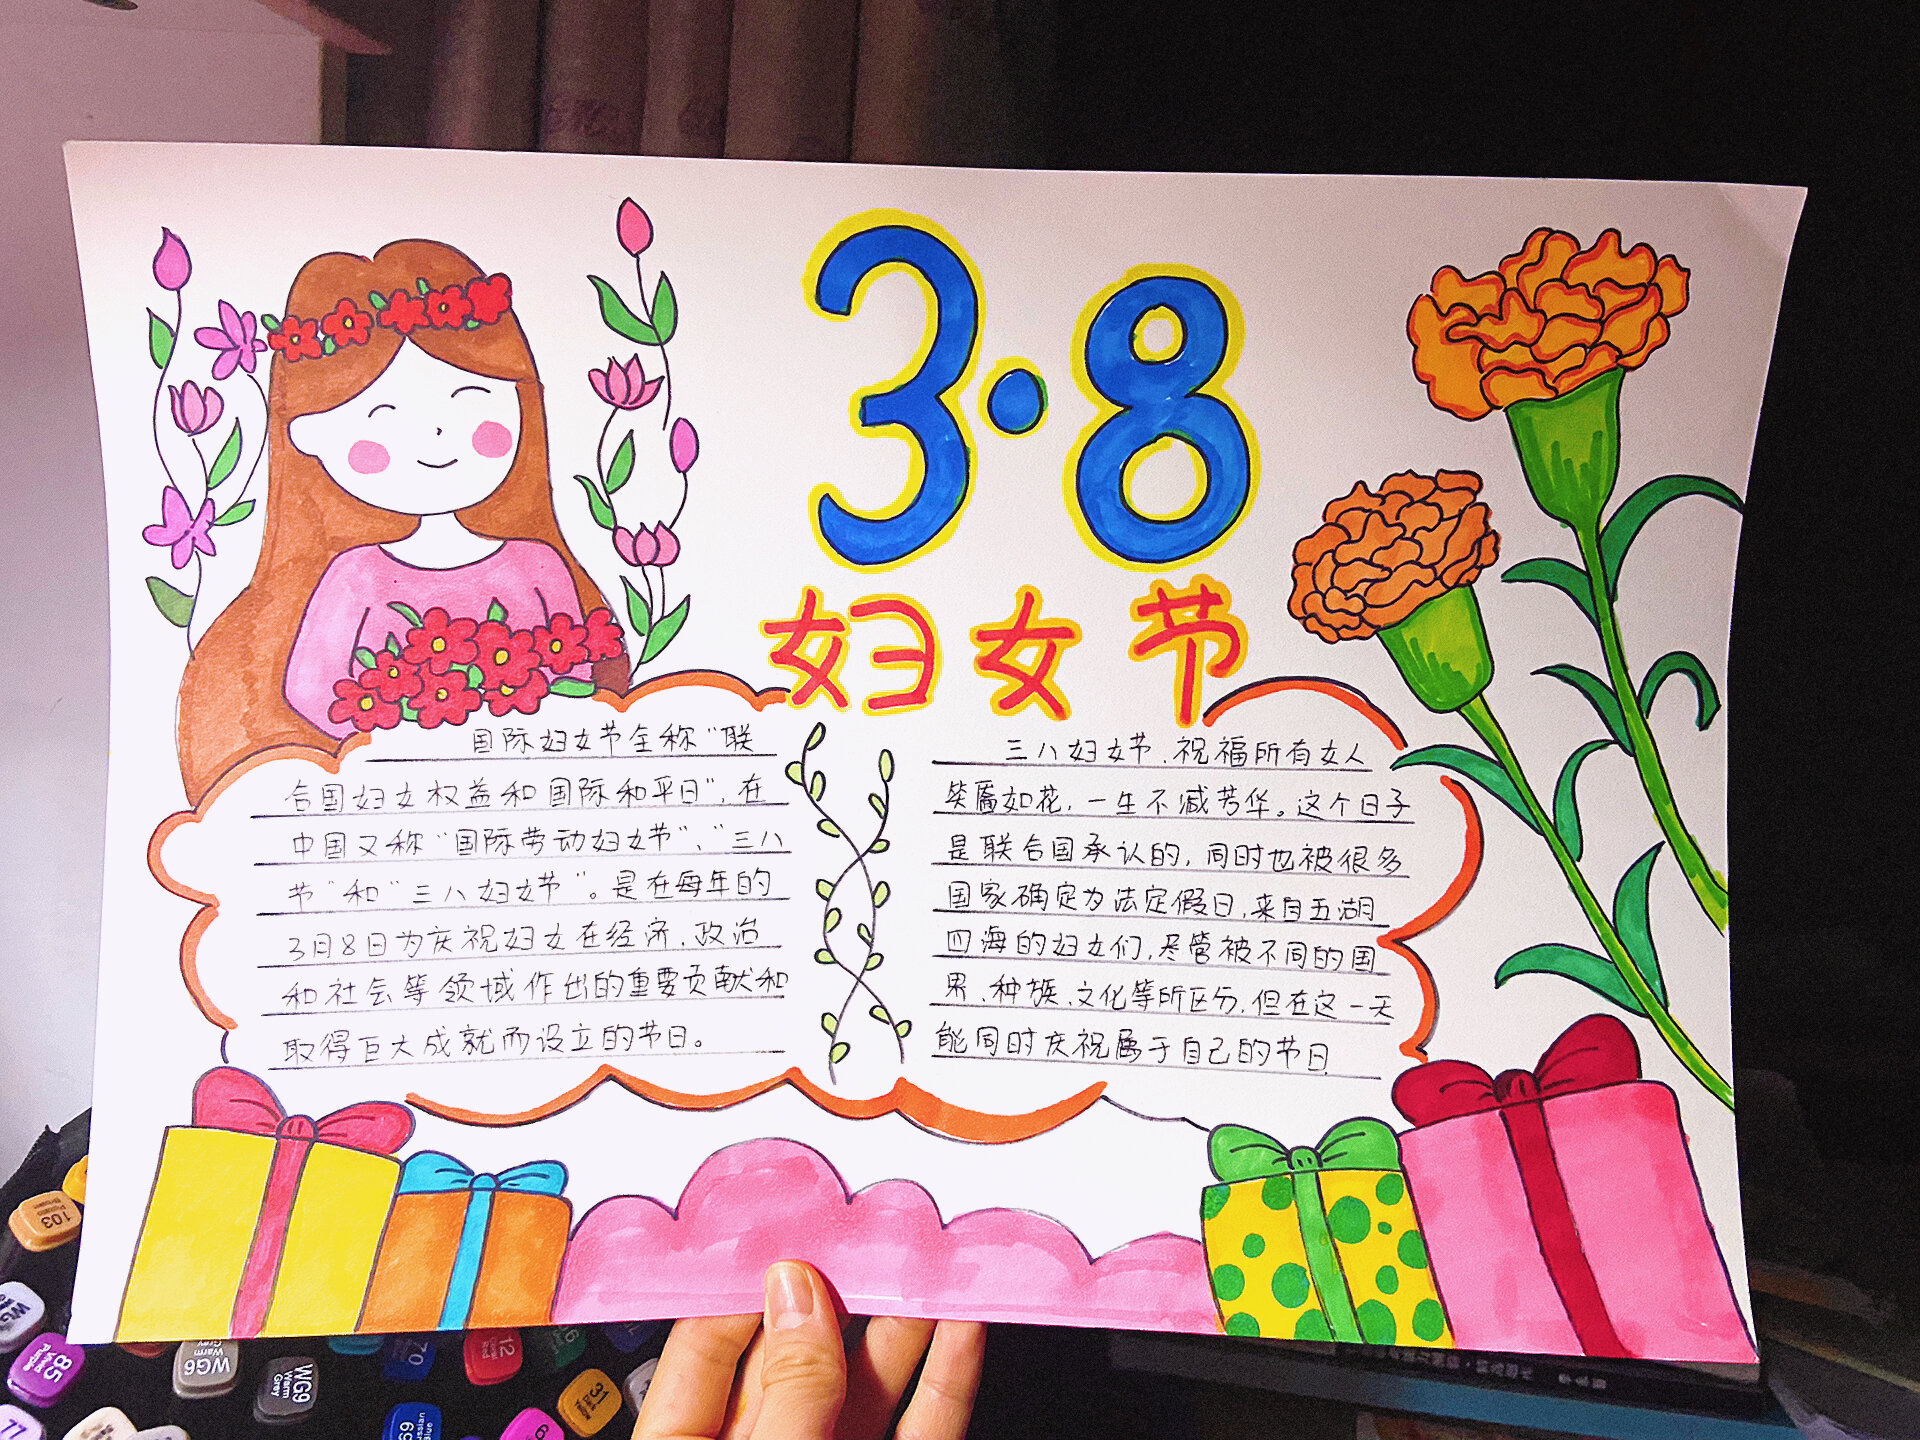 3·8
妇女节
国际妇女节全称“联
合国妇女权益和国际和平日”,在
中国又称“国际劳动妇女节”、“三八
节”和“三八妇女节”。是在每年的
3月8日为庆祝妇女在经济、政治
和社会等领域作出的重要贡献和
取得巨大成就而设立的节日。
三八妇女节、祝福所有女人
笑靥如花,一生不减芳华。这个日子
是联合国承认的,同时也被很多
国家确定为法定假日,来自五湖
四海的妇女们,尽管被不同的国
界、种族、文化等所区分,但在这一天
能同时庆祝属于自己的节日
103
85
WG6
Warm Grey
WG9
Warm Grey
70
12
31
69
77